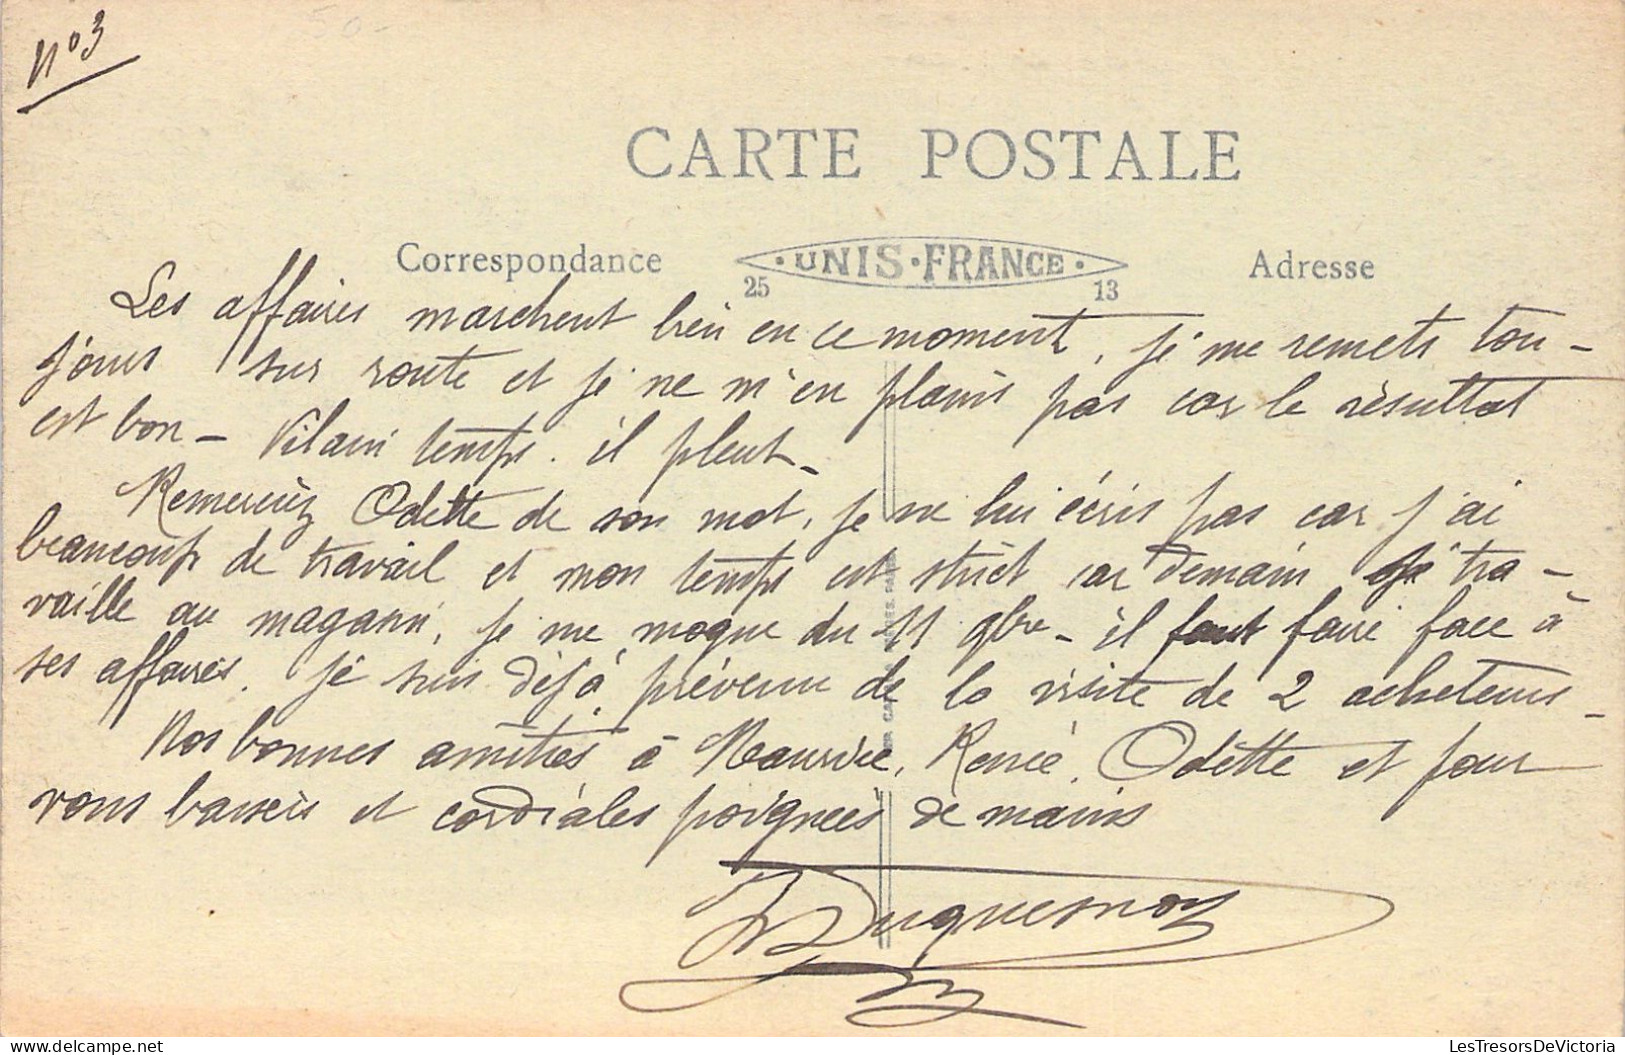 n° 3
50-
CARTE POSTALE
Correspondance
· UNIS · FRANCE ·
25 13
Adresse
Les affaires marchent bien en ce moment, je me remets tou-
jours sur route et je ne m'en plains pas car le résultat
est bon - Vilain temps. il pleut -
Remerciez Odette de son mot, je ne lui écris pas car j'ai
beaucoup de travail et mon temps est strict car demain je tra-
vaille au magasin, je me moque du 11 9bre - il faut faire face à
ses affaires. Je suis déjà prévenu de la visite de 2 acheteurs -
Nos bonnes amitiés à Maurice, Renée, Odette et pour
vous baisers et cordiales poignées de mains
Duquesnoy
LesTresorsDeVictoria
LesTresorsDeVictoria.com